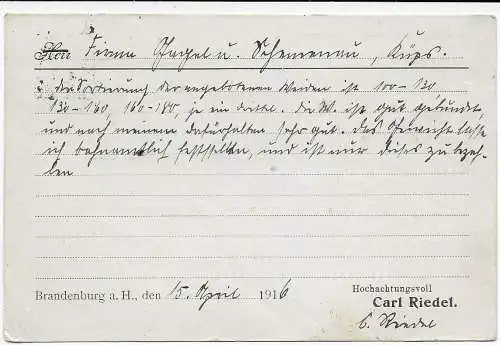 Herrn Firma Gagel u. Schemenau, Küps.
: Die Sortierung der angebotenen Weiden ist 100-130,
130-160, 160-180, je ein drittel. Die W. ist gut gebündet,
und nach meinem dafürhalten sehr gut. Das Gewicht lasse
ich bahnamtlich feststellen, und ist nur dises zu bezah-
len
Brandenburg a. H., den 15. April 1916
Hochachtungsvoll
Carl Riedel.
C. Riedel